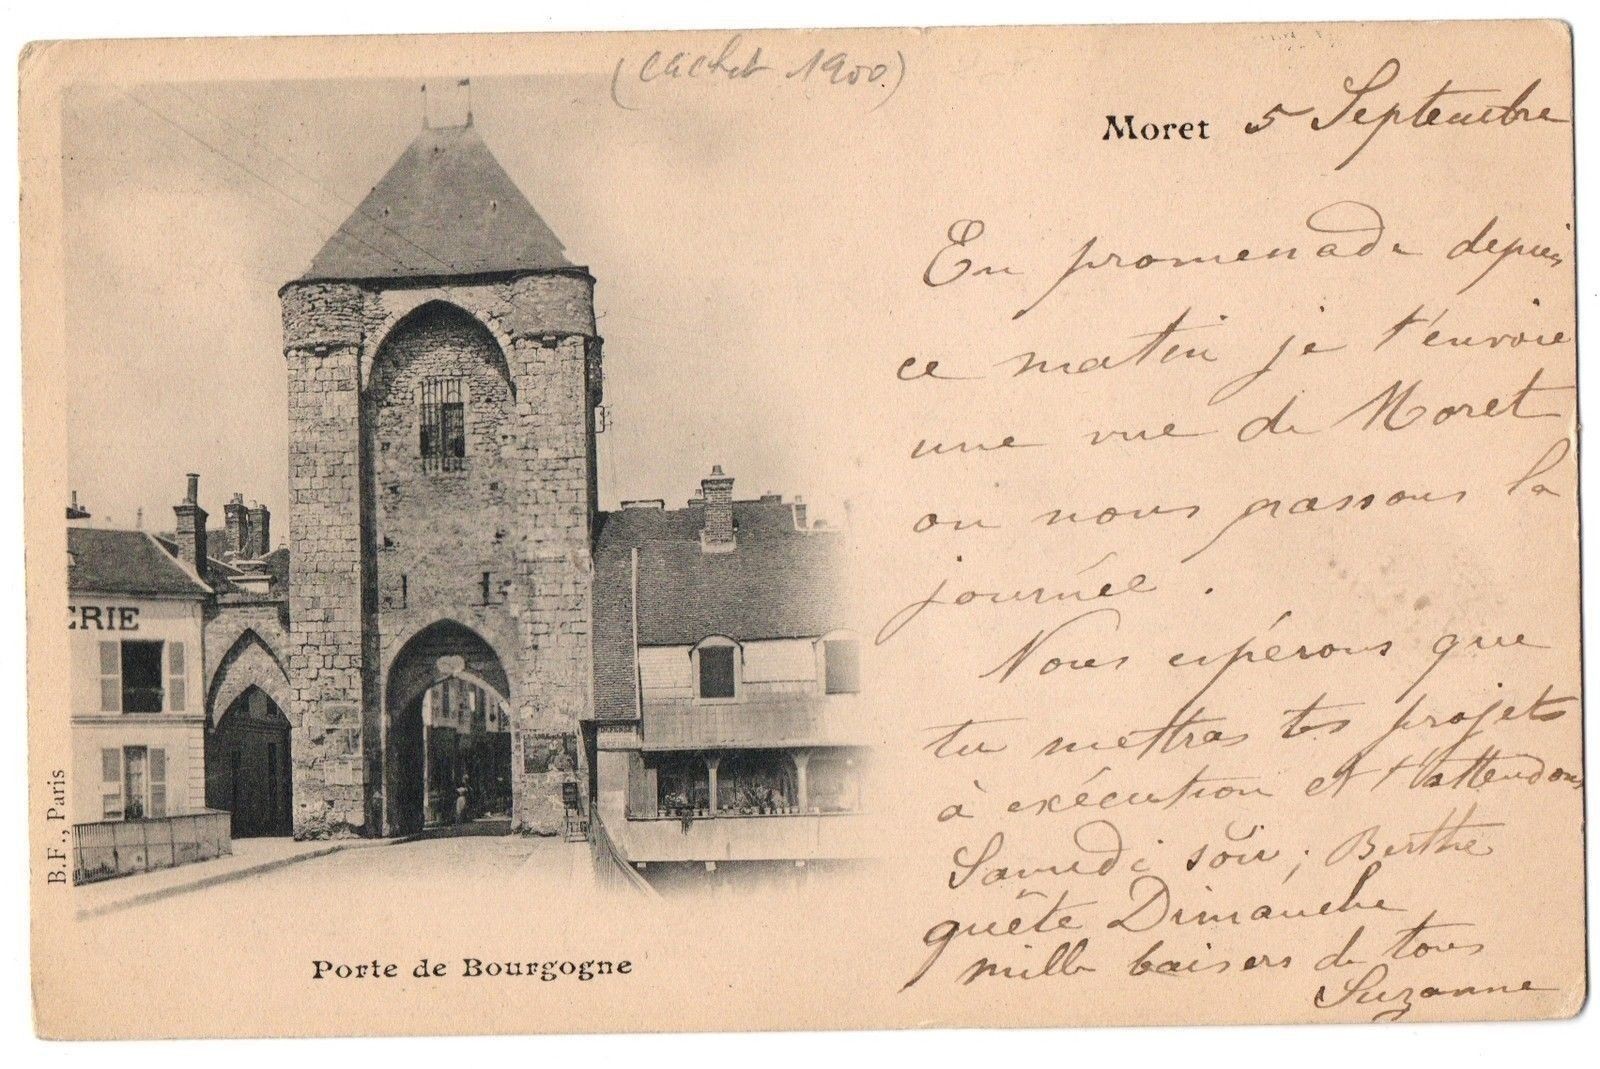 (cachet 1900)
Moret 5 Septembre
En promenade depuis
ce matin je t'envoie
une vue de Moret
ou nous passons la
journée.
Nous espérons que
tu mettras tes projets
à exécution et t'attendons
Samedi soir, Berthe
quête Dimanche
mille baisers de tous
Suzanne
ERIE
B.F., Paris
Porte de Bourgogne